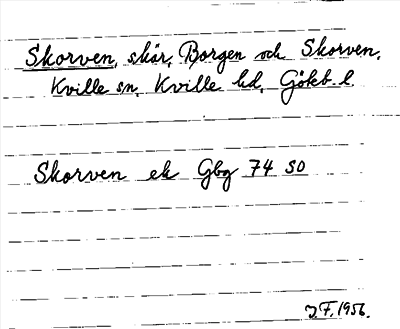 Skorven, skär, Borgen och Skorven.
Kville sn. Kville hd. Göteb. l.
Skorven ek Gbg 74 SO
J.F. 1956.